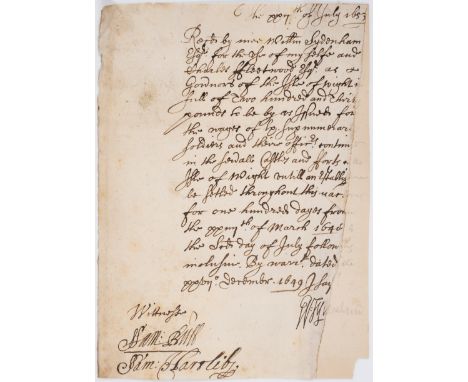 the xxvijth of July 1653
Recd by mee Willm Sydenham
Esqr for the use of my selfe and
Charles Fleetwood Esqr as
Governors of the Isle of Wight
full of Two hundred and Thirt
pounds to be by us issued for
the wages of lx supnumerar
soldiers and there officrs contin
in the sevall Castles and forts
Isle of Wight untill an establ
be setled throughout this
for one hundred dayes from
the of March 1648
the day of July follow
inclusive. By warrt dated
Decembr. 1649 I say
Wittness
Sam: Bull
Sam: Hartlib